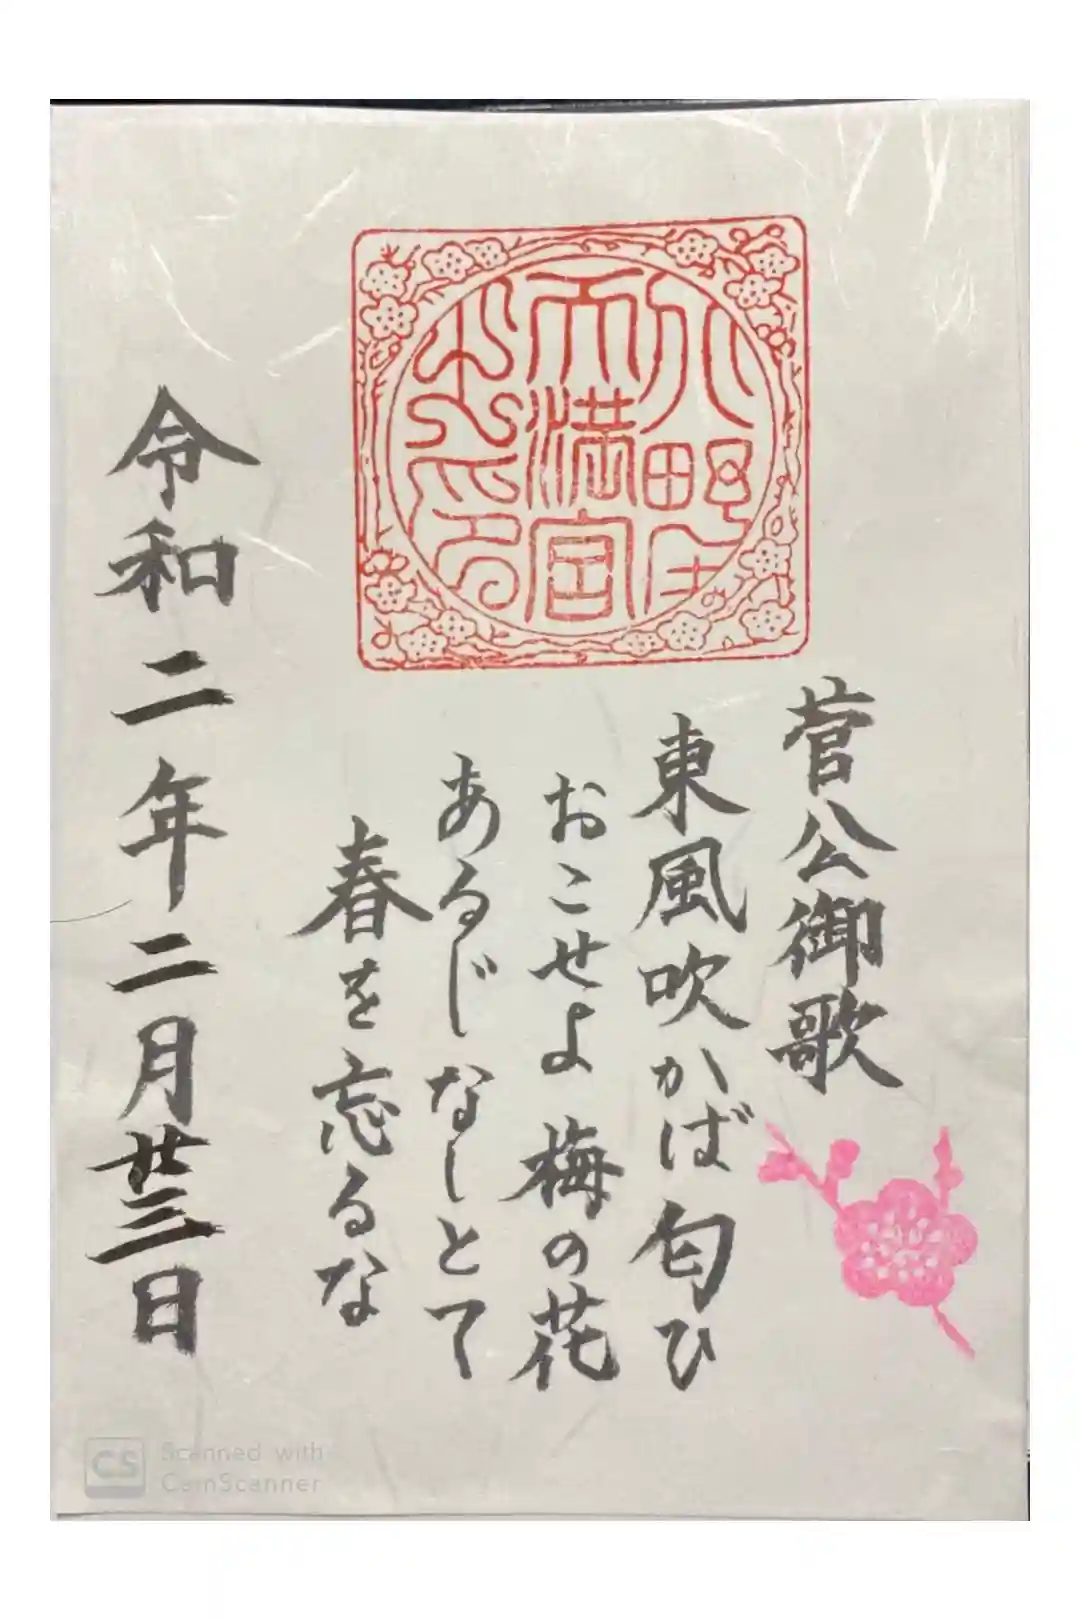 天満宮
菅公御歌
東風吹かば匂ひ
おこせよ梅の花
あるじなしとて
春を忘るな
令和二年二月廿三日
CS Scanned with
CamScanner